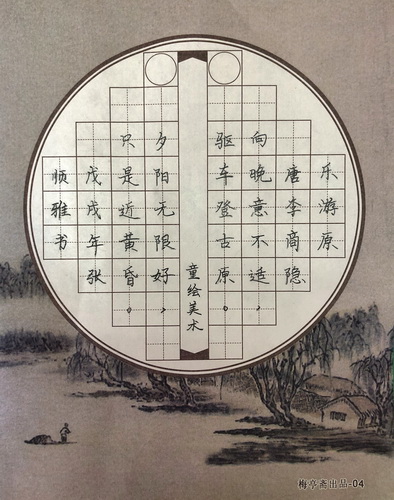 乐游原
唐李商隐
向晚意不适，
驱车登古原。
童绘美术
夕阳无限好，
只是近黄昏。
戊戌年张
顺雅书
梅亭斋出品-04